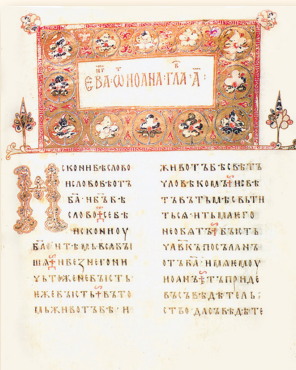 ЕВА҃ ѾИОАНА · ГЛА А҃ :
ИСКОНИБѢСЛОВО
ИСЛОВОБѢОТЪ
Б҃А · ИБ҃ЪБѢ
СЛОВО СЕБѢ
ИСКОНИОУ
Б҃А ИТѢМЬВЬСАБЫ
ША ИБЕЖНЕГОНИ
ЧЬТОЖЕНЕБЫСТЬ
ИЖЕБЫСТЬ ВЪТО
МЬЖИВОТЪБѢ · И
ЖИВОТЪБѢСВѢТЪ
ЧЛОВѢКОМЪ ИСВѢ
ТЪВЪТЬМѢСВЬТИ
ТЬСА · ИТЬМАѤГО
НЕОБАТЪ БЫСТЬ
ЧЛ҃ВКЪПОСЪЛАНЪ
ОТЪБ҃А · ИМАѤМОУ
ИОАНЪ ТЪПРИДЕ
ВЪСЪВѢДѢТЕЛЬ :
СТВО · ДАСЪВѢДѢТЕ